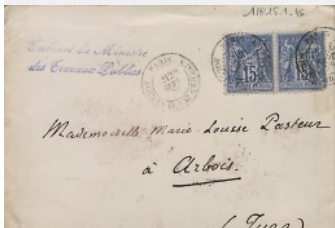 Cabinet du Ministre
des Travaux Publics
PARIS
15
15
Mademoiselle Marie Louise Pasteur
à Arbois.
(Jura)